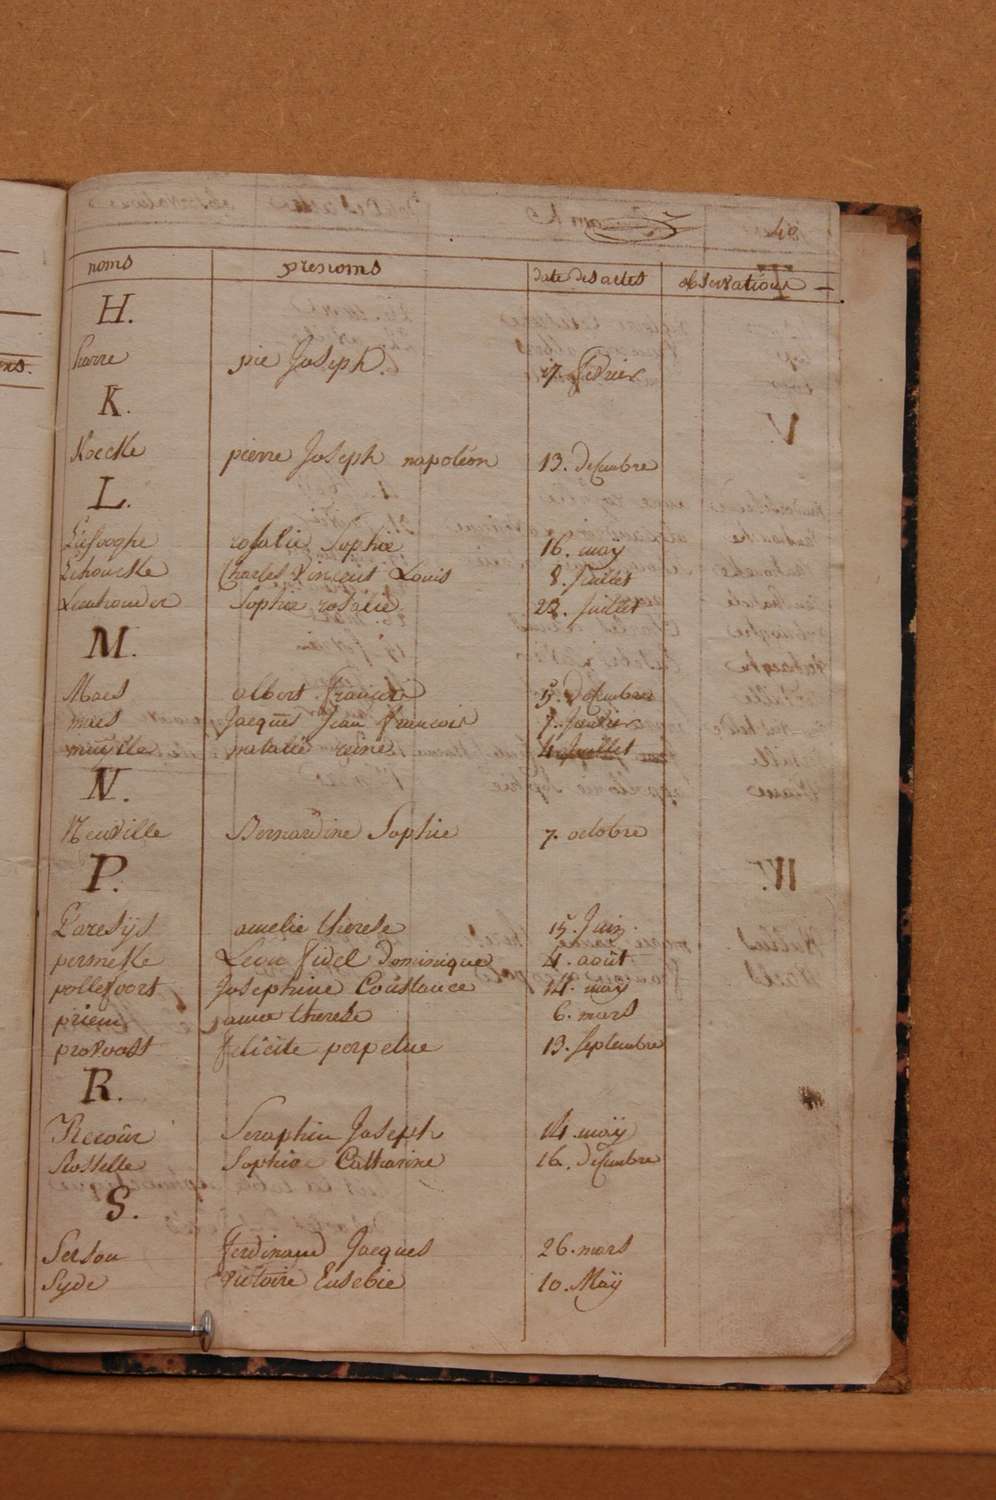 40
noms prenoms date des actes observations
H.
pie Joseph. 17. fevrier
K.
Kockke pierre Joseph napoléon 13. desembre
L.
Liefooghe rosalie Sophie 16. may
Lehoucke Charles Vincent Louis 8. Juillet
Sophie rosalie 22. Juillet
M.
Maes albert francois 15. Desembre
maes Jacques Jean francois 7. Janvier
natalie reine 4 Juillet
N.
Neuville Bernardine Sophie 7. octobre
P.
Paresÿs amelie therese 15. Juin
perneke Louis fidel Dominique 4. août
pollefoort Josephine Constance 14. may
priem therese 6. mars
provost felicite perpetue 13. septembre
R.
Recour Seraphin Joseph 14. maÿ
Rostelle Sophie Catharine 16. desembre
S.
Sersou ferdinand Jacques 26. mars
Syde victoire Eusebie 10. Maÿ